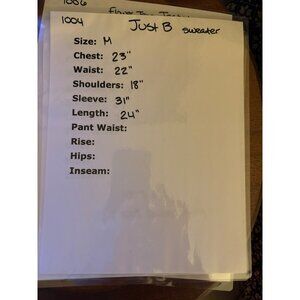 1006
1004 JUST B sweater
Size: M
Chest: 23"
Waist: 22"
Shoulders: 18"
Sleeve: 31"
Length: 24"
Pant Waist:
Rise:
Hips:
Inseam: